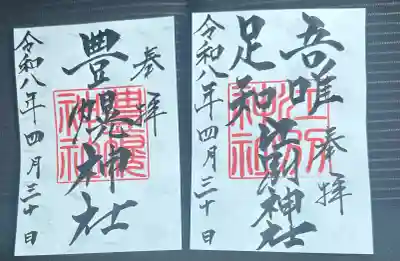 奉拝
豊幌神社
令和八年四月三十日
吾唯足知
奉拝
江別神社
令和八年四月三十日